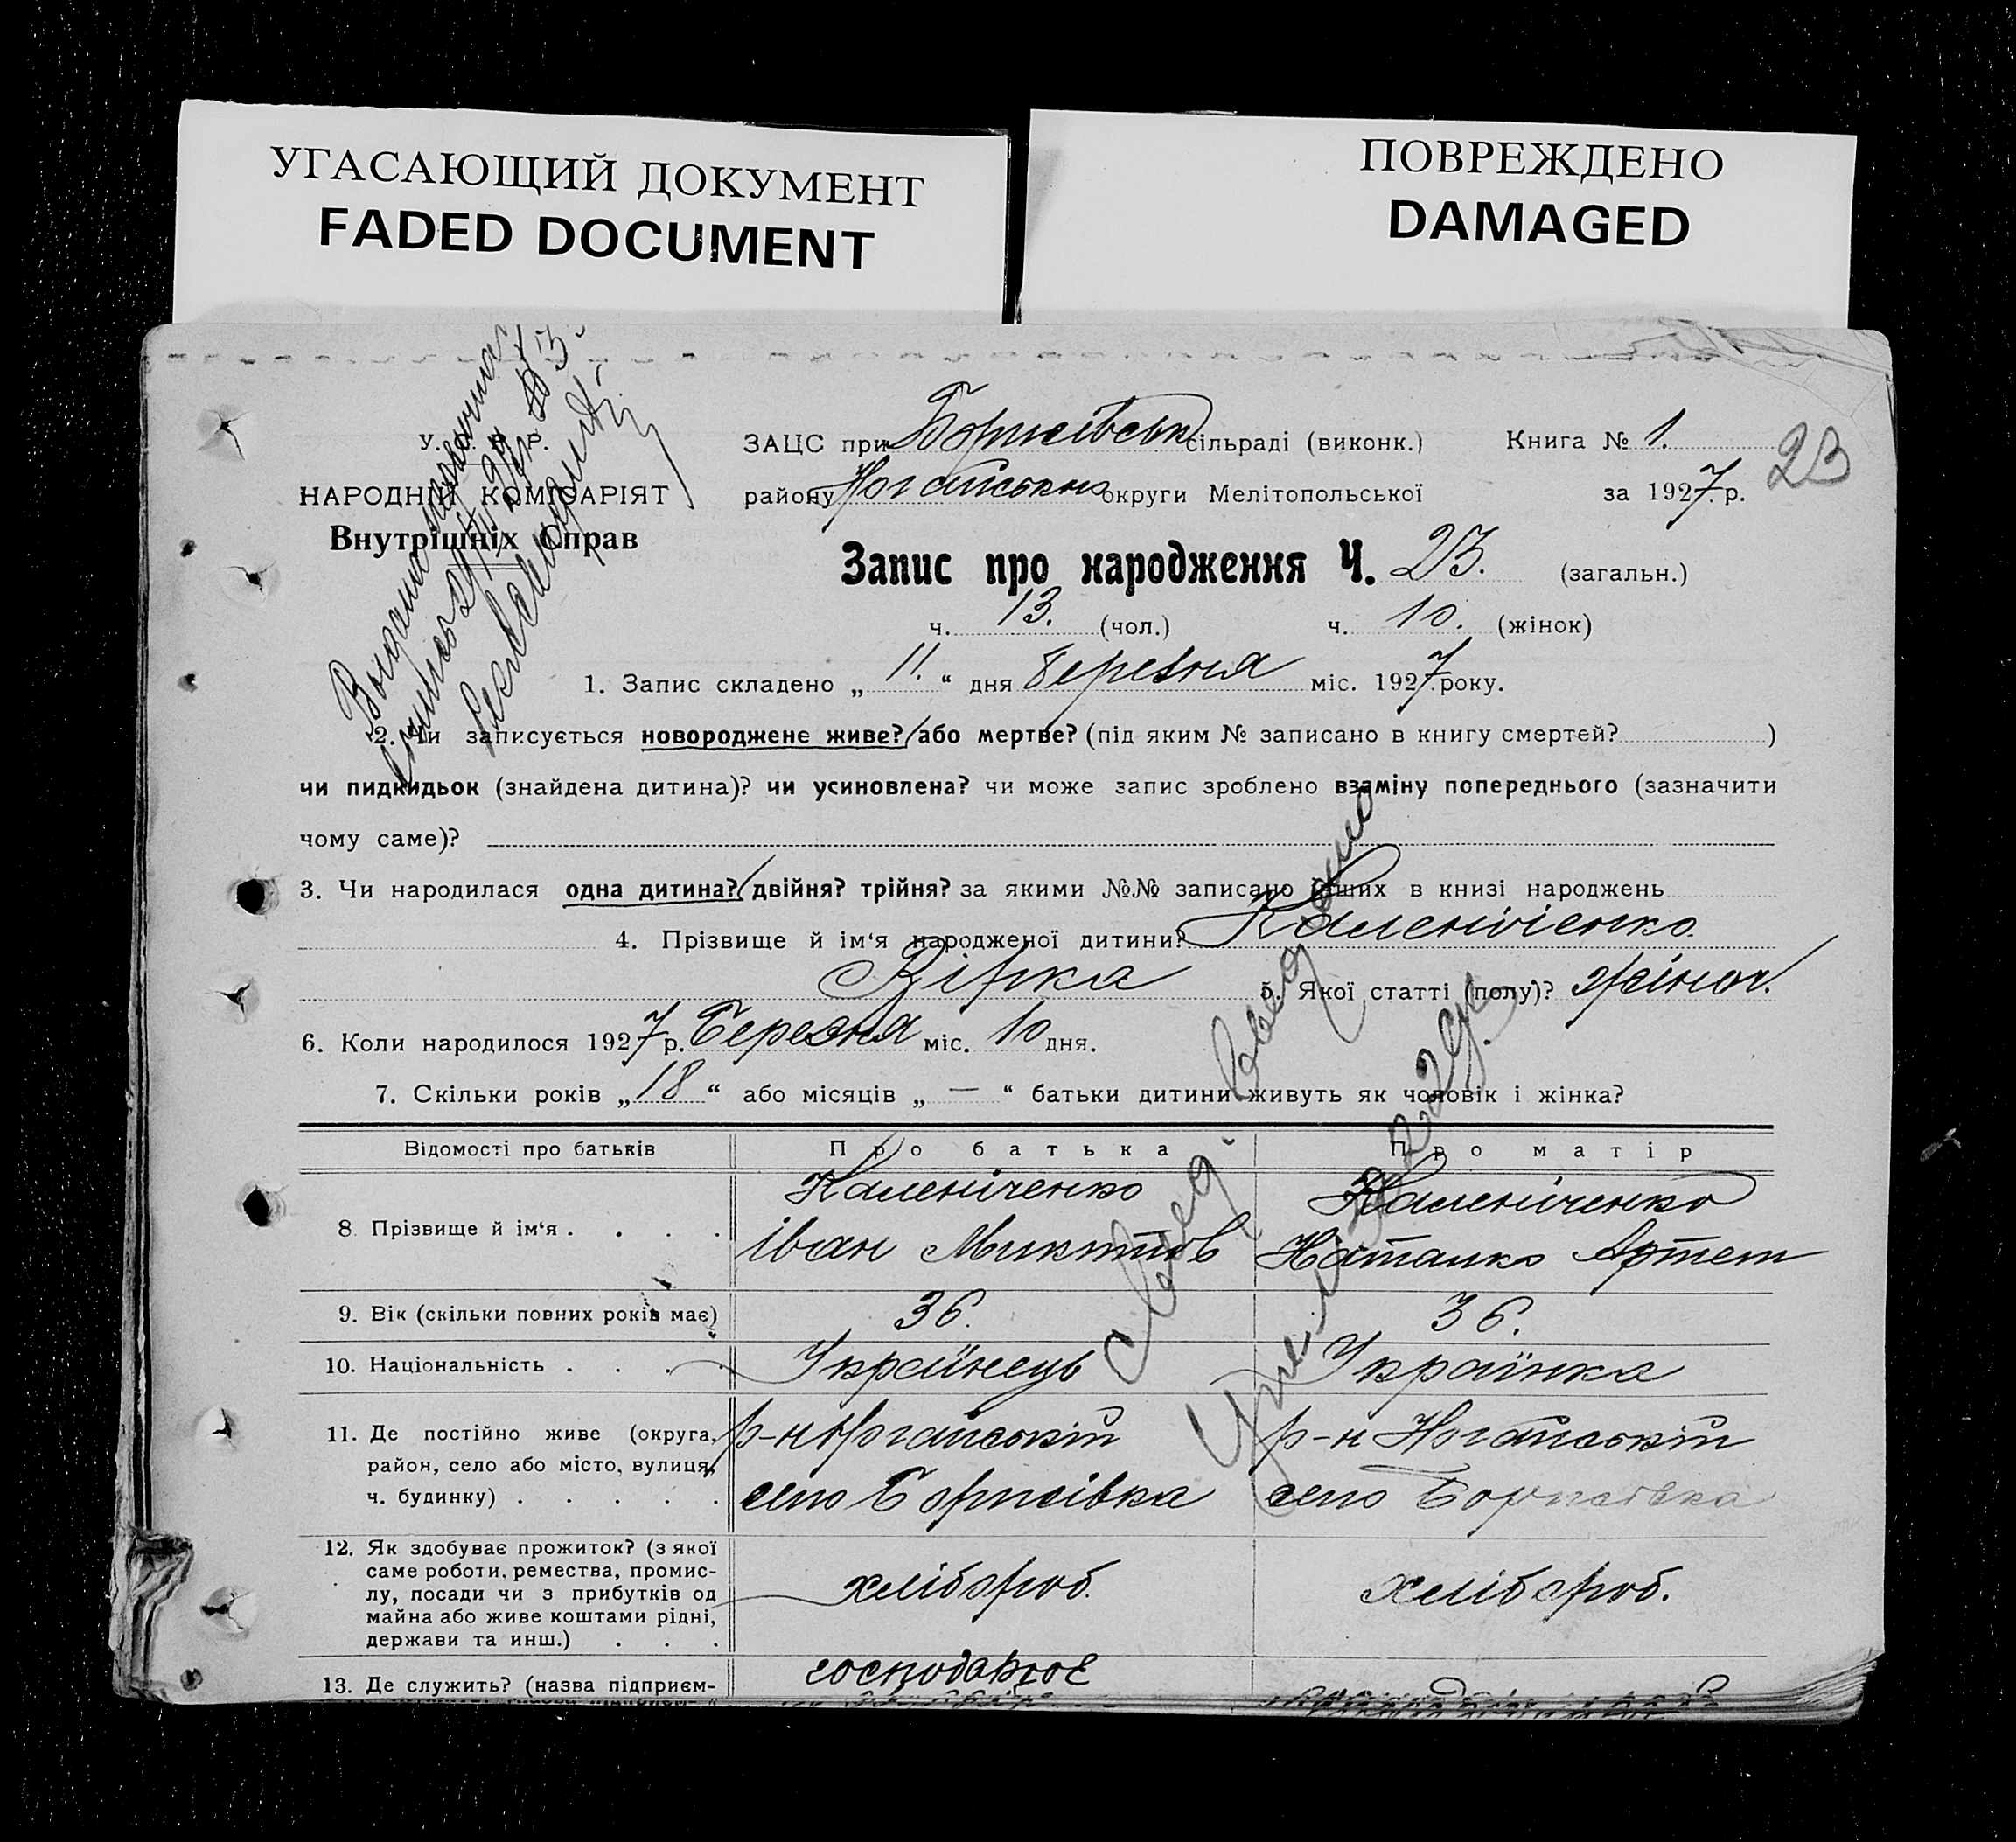 УГАСАЮЩИЙ ДОКУМЕНТ
FADED DOCUMENT
ПОВРЕЖДЕНО
DAMAGED
У. Р.
НАРОДНІЙ КОМІСАРІЯТ
Внутрішніх Справ
ЗАЦС при Борисівськ сільраді (виконк.) Книга № 1.
23
району Ногайському округи Мелітопольської за 1927 р.
Запис про народження Ч. 23. (загальн.)
ч. 13. (чол.) ч. 10. (жінок)
1. Запис складено „ 11. “ дня березня міс. 1927 року.
2. Чи записується новороджене живе? або мертве? (під яким № записано в книгу смертей? )
чи пидкидьок (знайдена дитина)? чи усиновлена? чи може запис зроблено взаміну попереднього (зазначити
чому саме)?
3. Чи народилася одна дитина? двійня? трійня? за якими №№ записано інших в книзі народжень
4. Прізвище й ім‘я народженої дитини? Каленіченко
Вірка 5. Якої статті (полу)? жіноч.
6. Коли народилося 1927 р. Березня міс. 10 дня.
7. Скільки років „ 18 “ або місяців „ — “ батьки дитини живуть як чоловік і жінка?
Відомості про батьків Про батька Про матір
8 Прізвище й ім‘я . . . . Каленіченко Каленіченко
Іван Микитов Наталка Артем
9. Вік (скільки повних років має) 36. 36.
10. Національність . . . . Українець Українка
11. Де постійно живе (округа, район, село або місто, вулиця, ч. будинку) . . . . .
р-н Ногайський р-н Ногайський
село Борисівка село Борисівка
12. Як здобуває прожиток? (з якої саме роботи, ремества, промис-
лу, посади чи з прибутків од
майна або живе коштами рідні,
держави та инш.) . . .
хлібороб. хлібороб.
13. Де служить? (назва підприєм- господарює